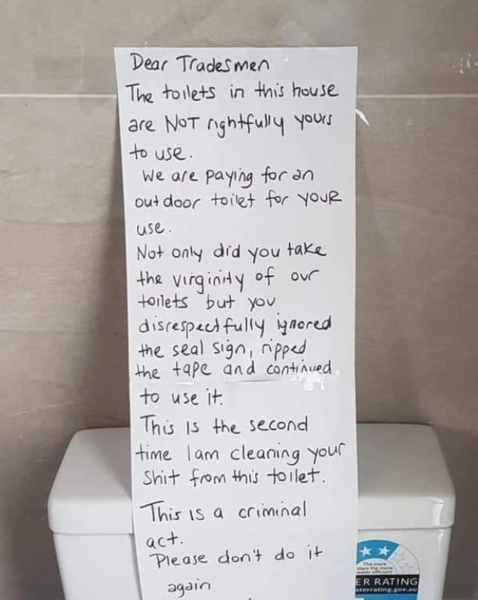 Dear Tradesmen
The toilets in this house
are NOT rightfully yours
to use.
We are paying for an
outdoor toilet for YOUR
use.
Not only did you take
the virginity of our
toilets but you
disrespectfully ignored
the seal sign, ripped
the tape and continued
to use it.
This is the second
time I am cleaning your
shit from this toilet.
This is a criminal
act.
Please don't do it
again
The more
stars the more
water efficient
ER RATING
aterrating.gov.au